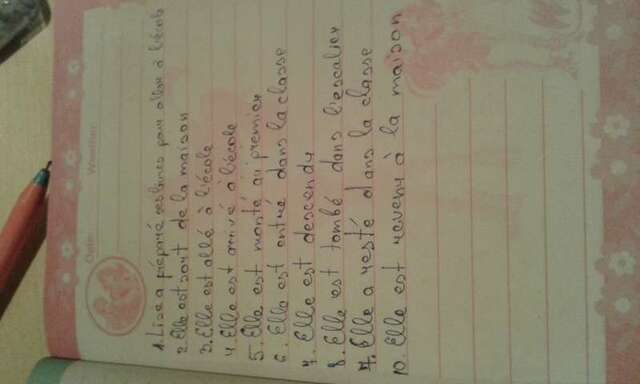 Date: Weather:
1. Lise a préparé ses livres pour aller à l'école
2. Elle est sort de la maison
3. Elle est allé à l'école
4. Elle est arrivé à l'école
5. Elle est monté au premier
6. Elle est entré dans la classe
7. Elle est descendu
8. Elle est tombé dans l'escalier
9. Elle a resté dans la classe
10. Elle est revenu à la maison